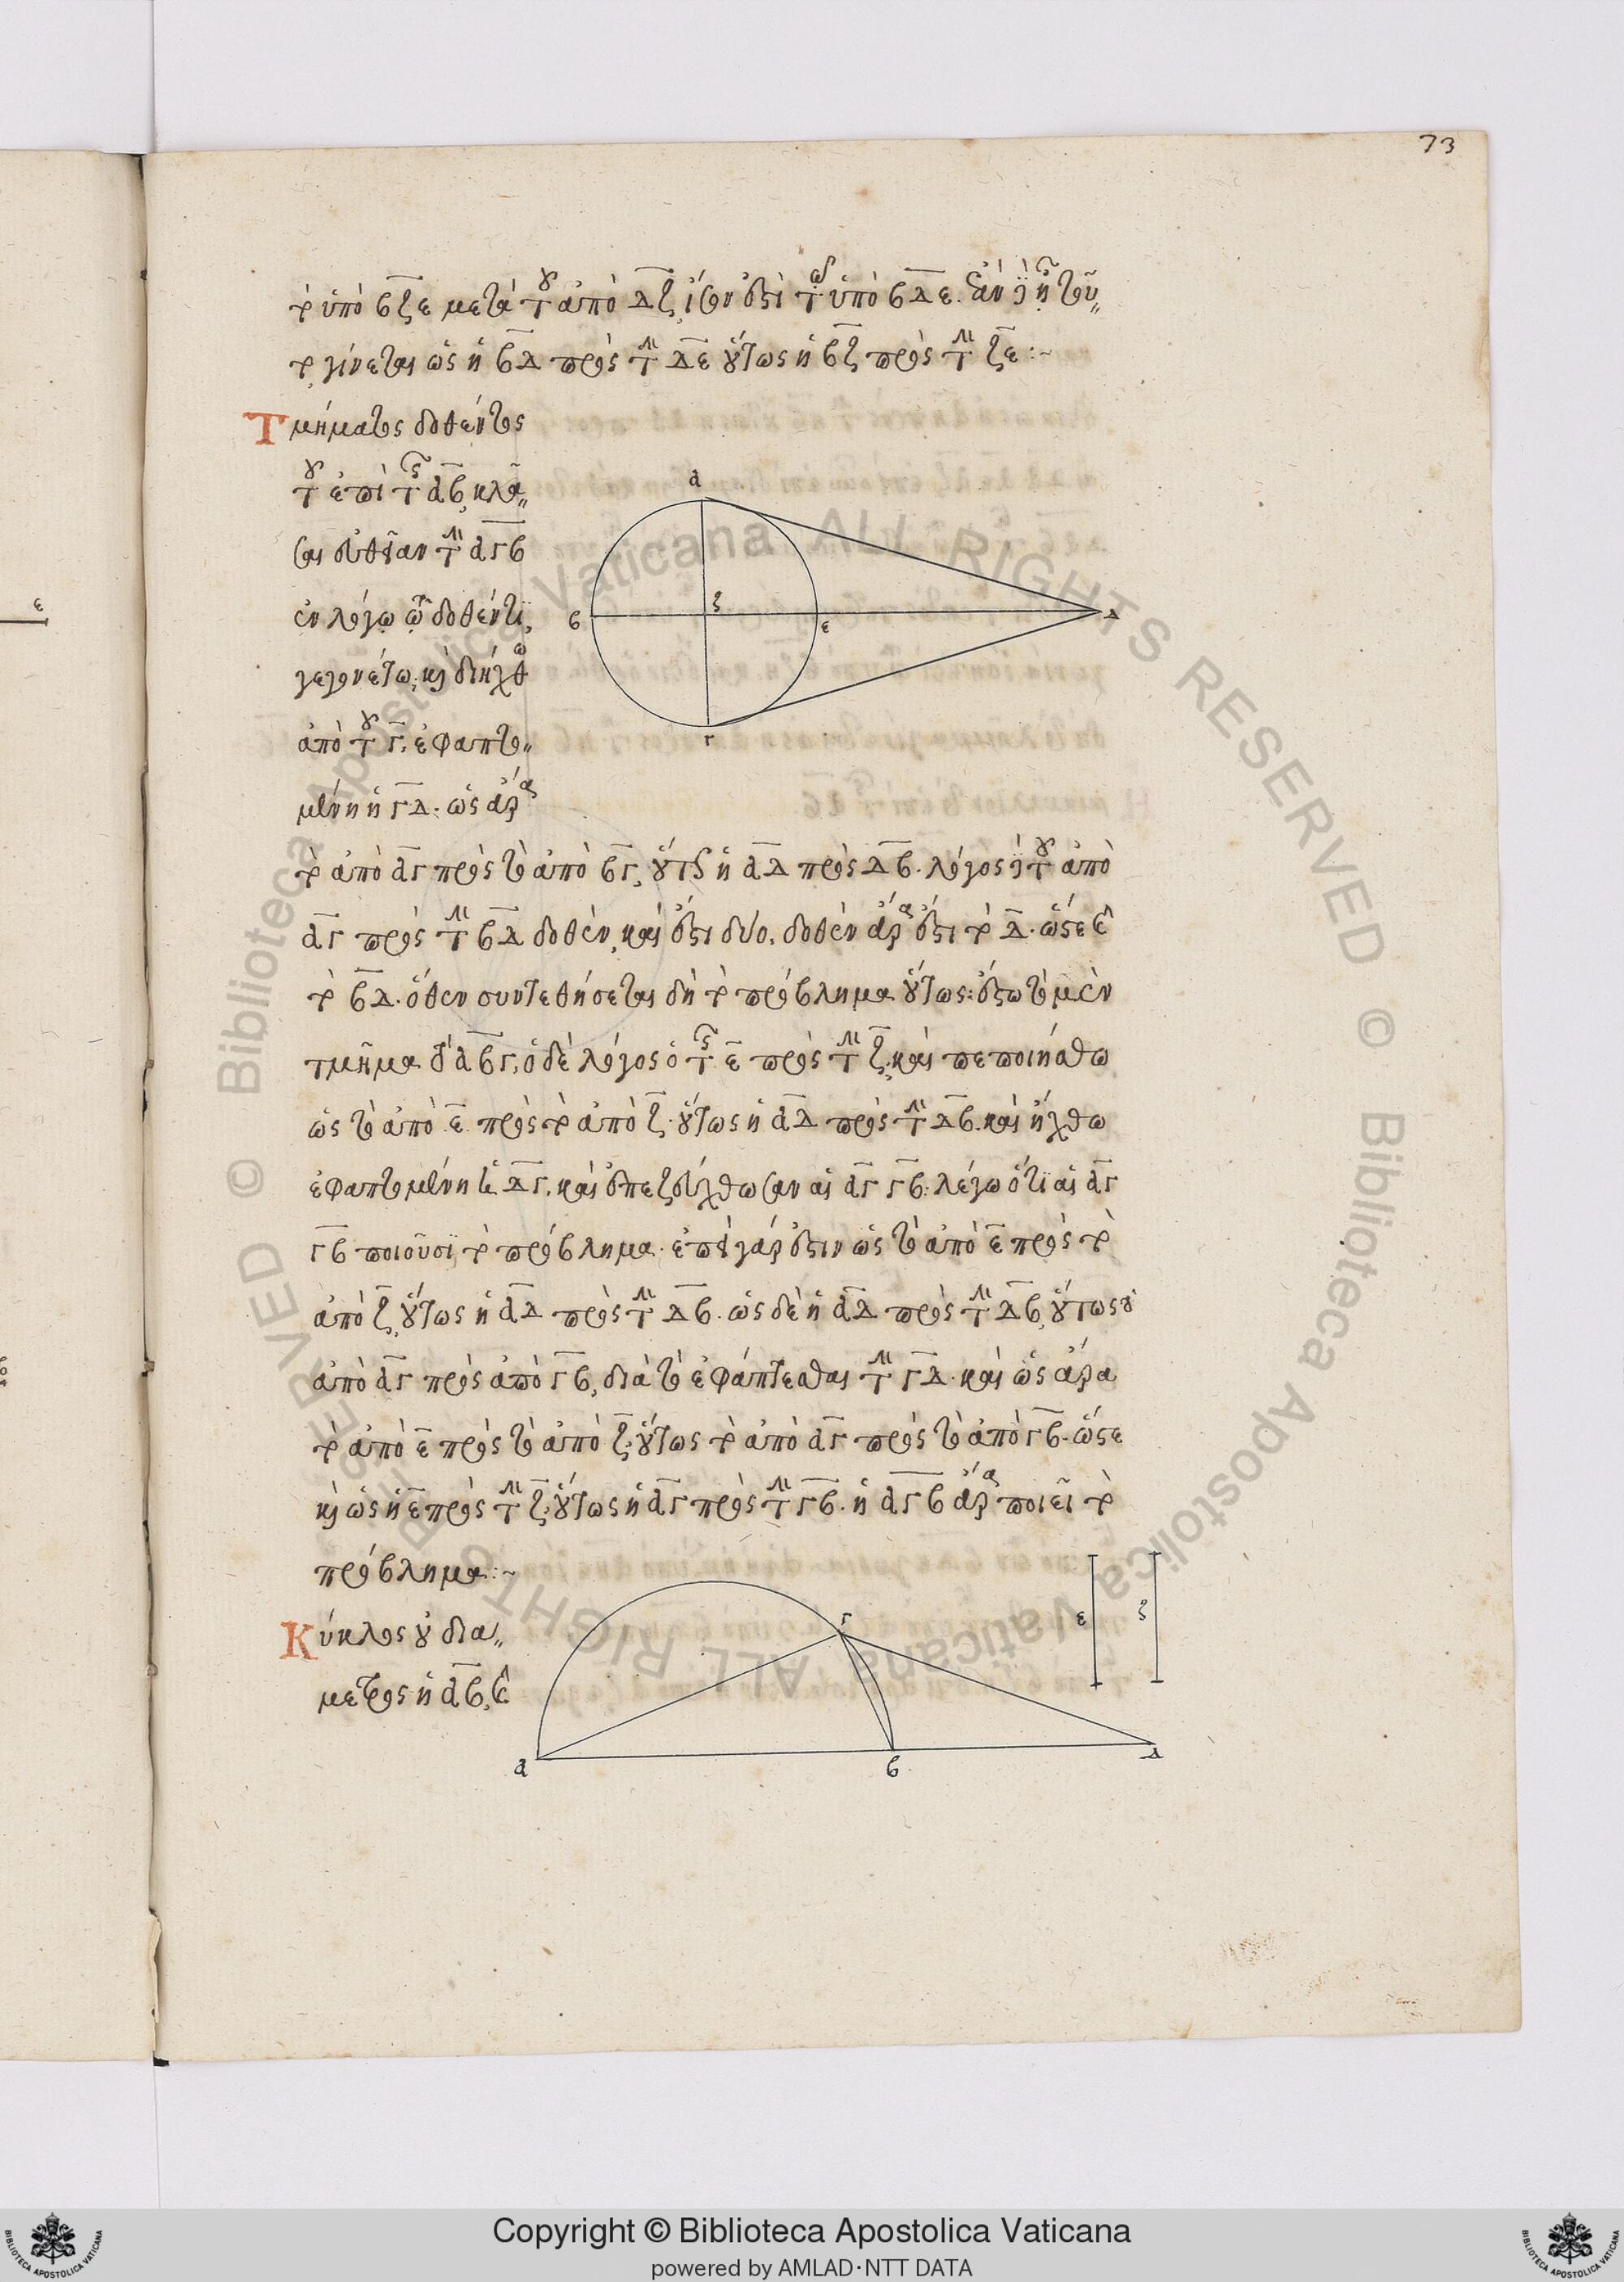 73
τὸ ὑπὸ βζε μετὰ τοῦ ἀπὸ δζ, ἴσον ἐστὶ τῷ ὑπὸ βδε. ἐὰν γὰρ ᾖ τοῦ
το, γίνεται ὡς ἡ βδ πρὸς τὴν δε οὕτως ἡ βζ πρὸς τὴν ζε :~
Τμήματος δοθέντος
τοῦ ἐπὶ τῆς αβ, κλᾶ
σαι εὐθεῖαν τὴν αγβ
ἐν λόγω τῶ δοθέντι,
γεγονέτω, καὶ διήχθω
ἀπὸ τοῦ γ, ἐφαπτο
μένη ἡ γδ. ὡς ἄρα
τὸ ἀπὸ αγ πρὸς τὸ ἀπὸ βγ, οὕτως ἡ αδ πρὸς δβ. λόγος γὰρ τοῦ ἀπὸ
αγ πρὸς τὴν βδ δοθὲν, καὶ ἐστι δύο, δοθὲν ἄρα ἐστι τὸ δ. ὥστε καὶ
τὸ βδ. ὅθεν συντεθήσεται δὴ τὸ πρόβλημα οὕτως: ἔστω τὸ μὲν
τμῆμα τὸ αβγ, ὁ δὲ λόγος ὁ τῆς ε πρὸς τὴν ζ, καὶ πεποιήσθω
ὡς τὸ ἀπὸ ε πρὸς τὸ ἀπὸ ζ. οὕτως ἡ αδ πρὸς τὴν δβ. καὶ ἤχθω
ἐφαπτομένη ἡ δγ, καὶ ἐπεζεύχθωσαν αἱ αγ γβ: λέγω ὅτι αἱ αγ
γβ ποιοῦσι τὸ πρόβλημα. ἐπεὶ γάρ ἐστιν ὡς τὸ ἀπὸ ε πρὸς τὸ
ἀπὸ ζ, οὕτως ἡ αδ πρὸς τὴν δβ. ὡς δὲ ἡ αδ πρὸς τὴν δβ, οὕτως
ἀπὸ αγ πρὸς ἀπὸ γβ, διὰ τὸ ἐφάπτεσθαι τὴν γδ. καὶ ὡς ἄρα
τὸ ἀπὸ ε πρὸς τὸ ἀπὸ ζ, οὕτως τὸ ἀπὸ αγ πρὸς τὸ ἀπὸ γβ. ὥστε
καὶ ὡς ἡ ε πρὸς τὴν ζ, οὕτως ἡ αγ πρὸς τὴν γβ. ἡ αγβ ἄρα ποιεῖ τὸ
πρόβλημα :~
Κύκλος οὗ δια
μετρος ἡ αβ, καὶ
α
β
ζ
ε
δ
γ
γ
ε
ζ
α
β
δ
Copyright © Biblioteca Apostolica Vaticana
powered by AMLAD·NTT DATA